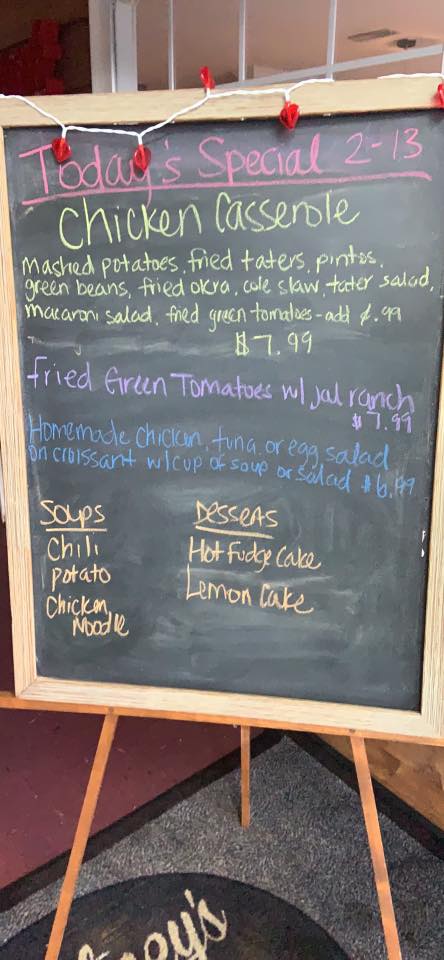 Today's Special 2-13
Chicken Casserole
mashed potatoes, fried taters, pintos,
green beans, fried okra, cole slaw, tater salad,
macaroni salad, fried green tomatoes - add ¢.99
$7.99
Fried Green Tomatoes w/ jal ranch
$7.99
Homemade chicken, tuna, or egg salad
on croissant w/ cup of soup or salad $6.99
Soups
Desserts
Chili
Hot Fudge Cake
Potato
Lemon Cake
Chicken
Noodle